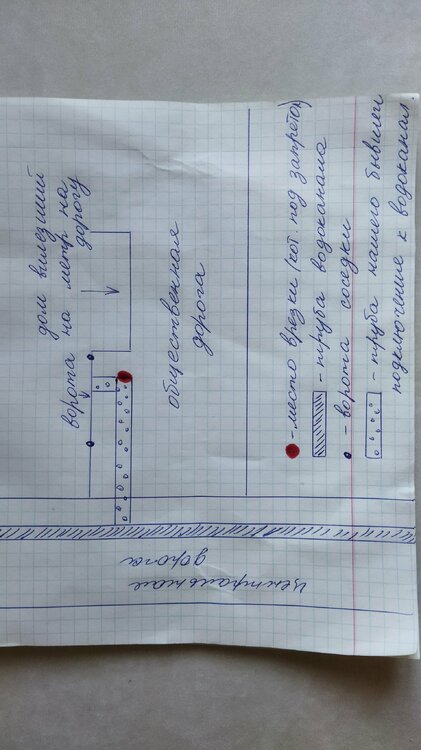 дом вылезший
на метр на
дорогу
ворота
общественная
дорога
центральная
дорога
- место врезки (кот. под запретом)
- труба водоканала
- ворота соседки
- труба нашего бывшего
подключение к водоканал